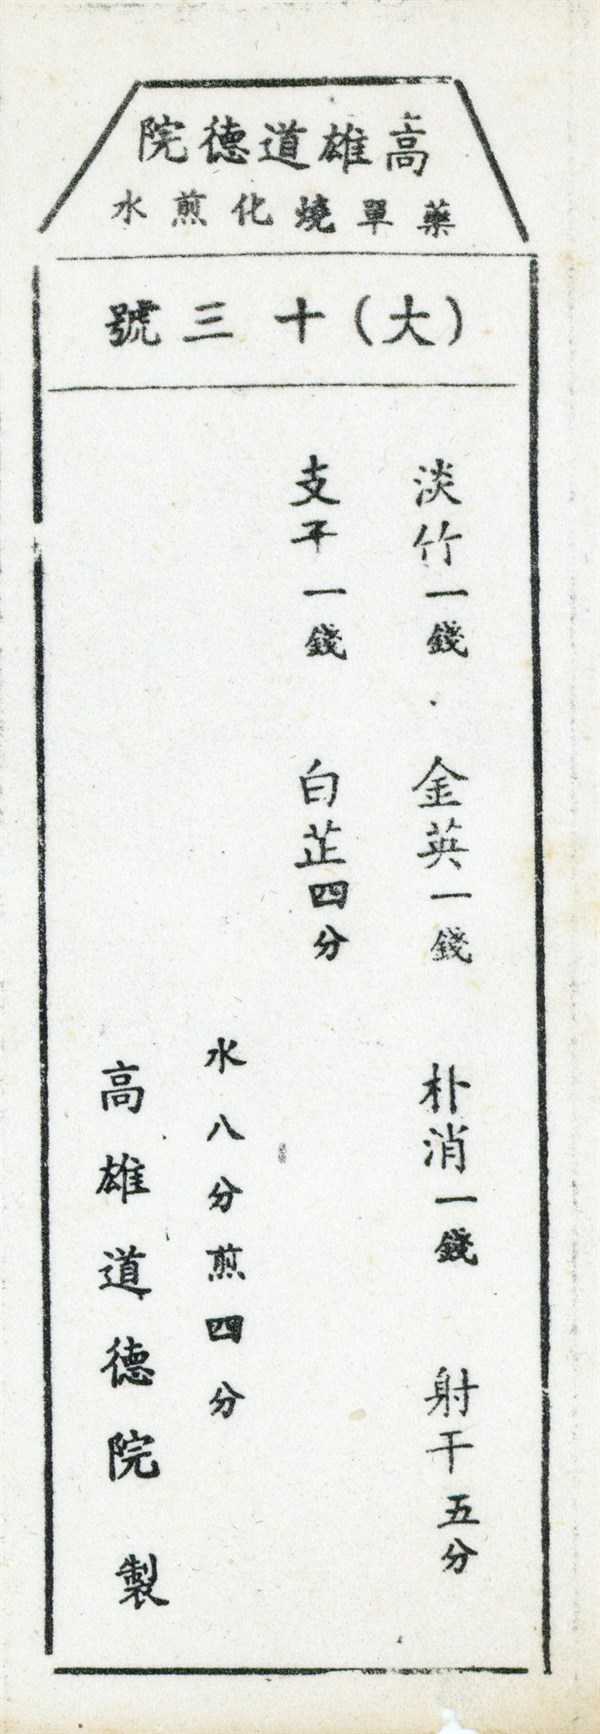 高雄道德院
藥單燒化煎水
(大)十三號
淡竹一錢 金英一錢 朴消一錢 射干五分
支干一錢 白芷四分
水八分煎四分
高雄道德院 製